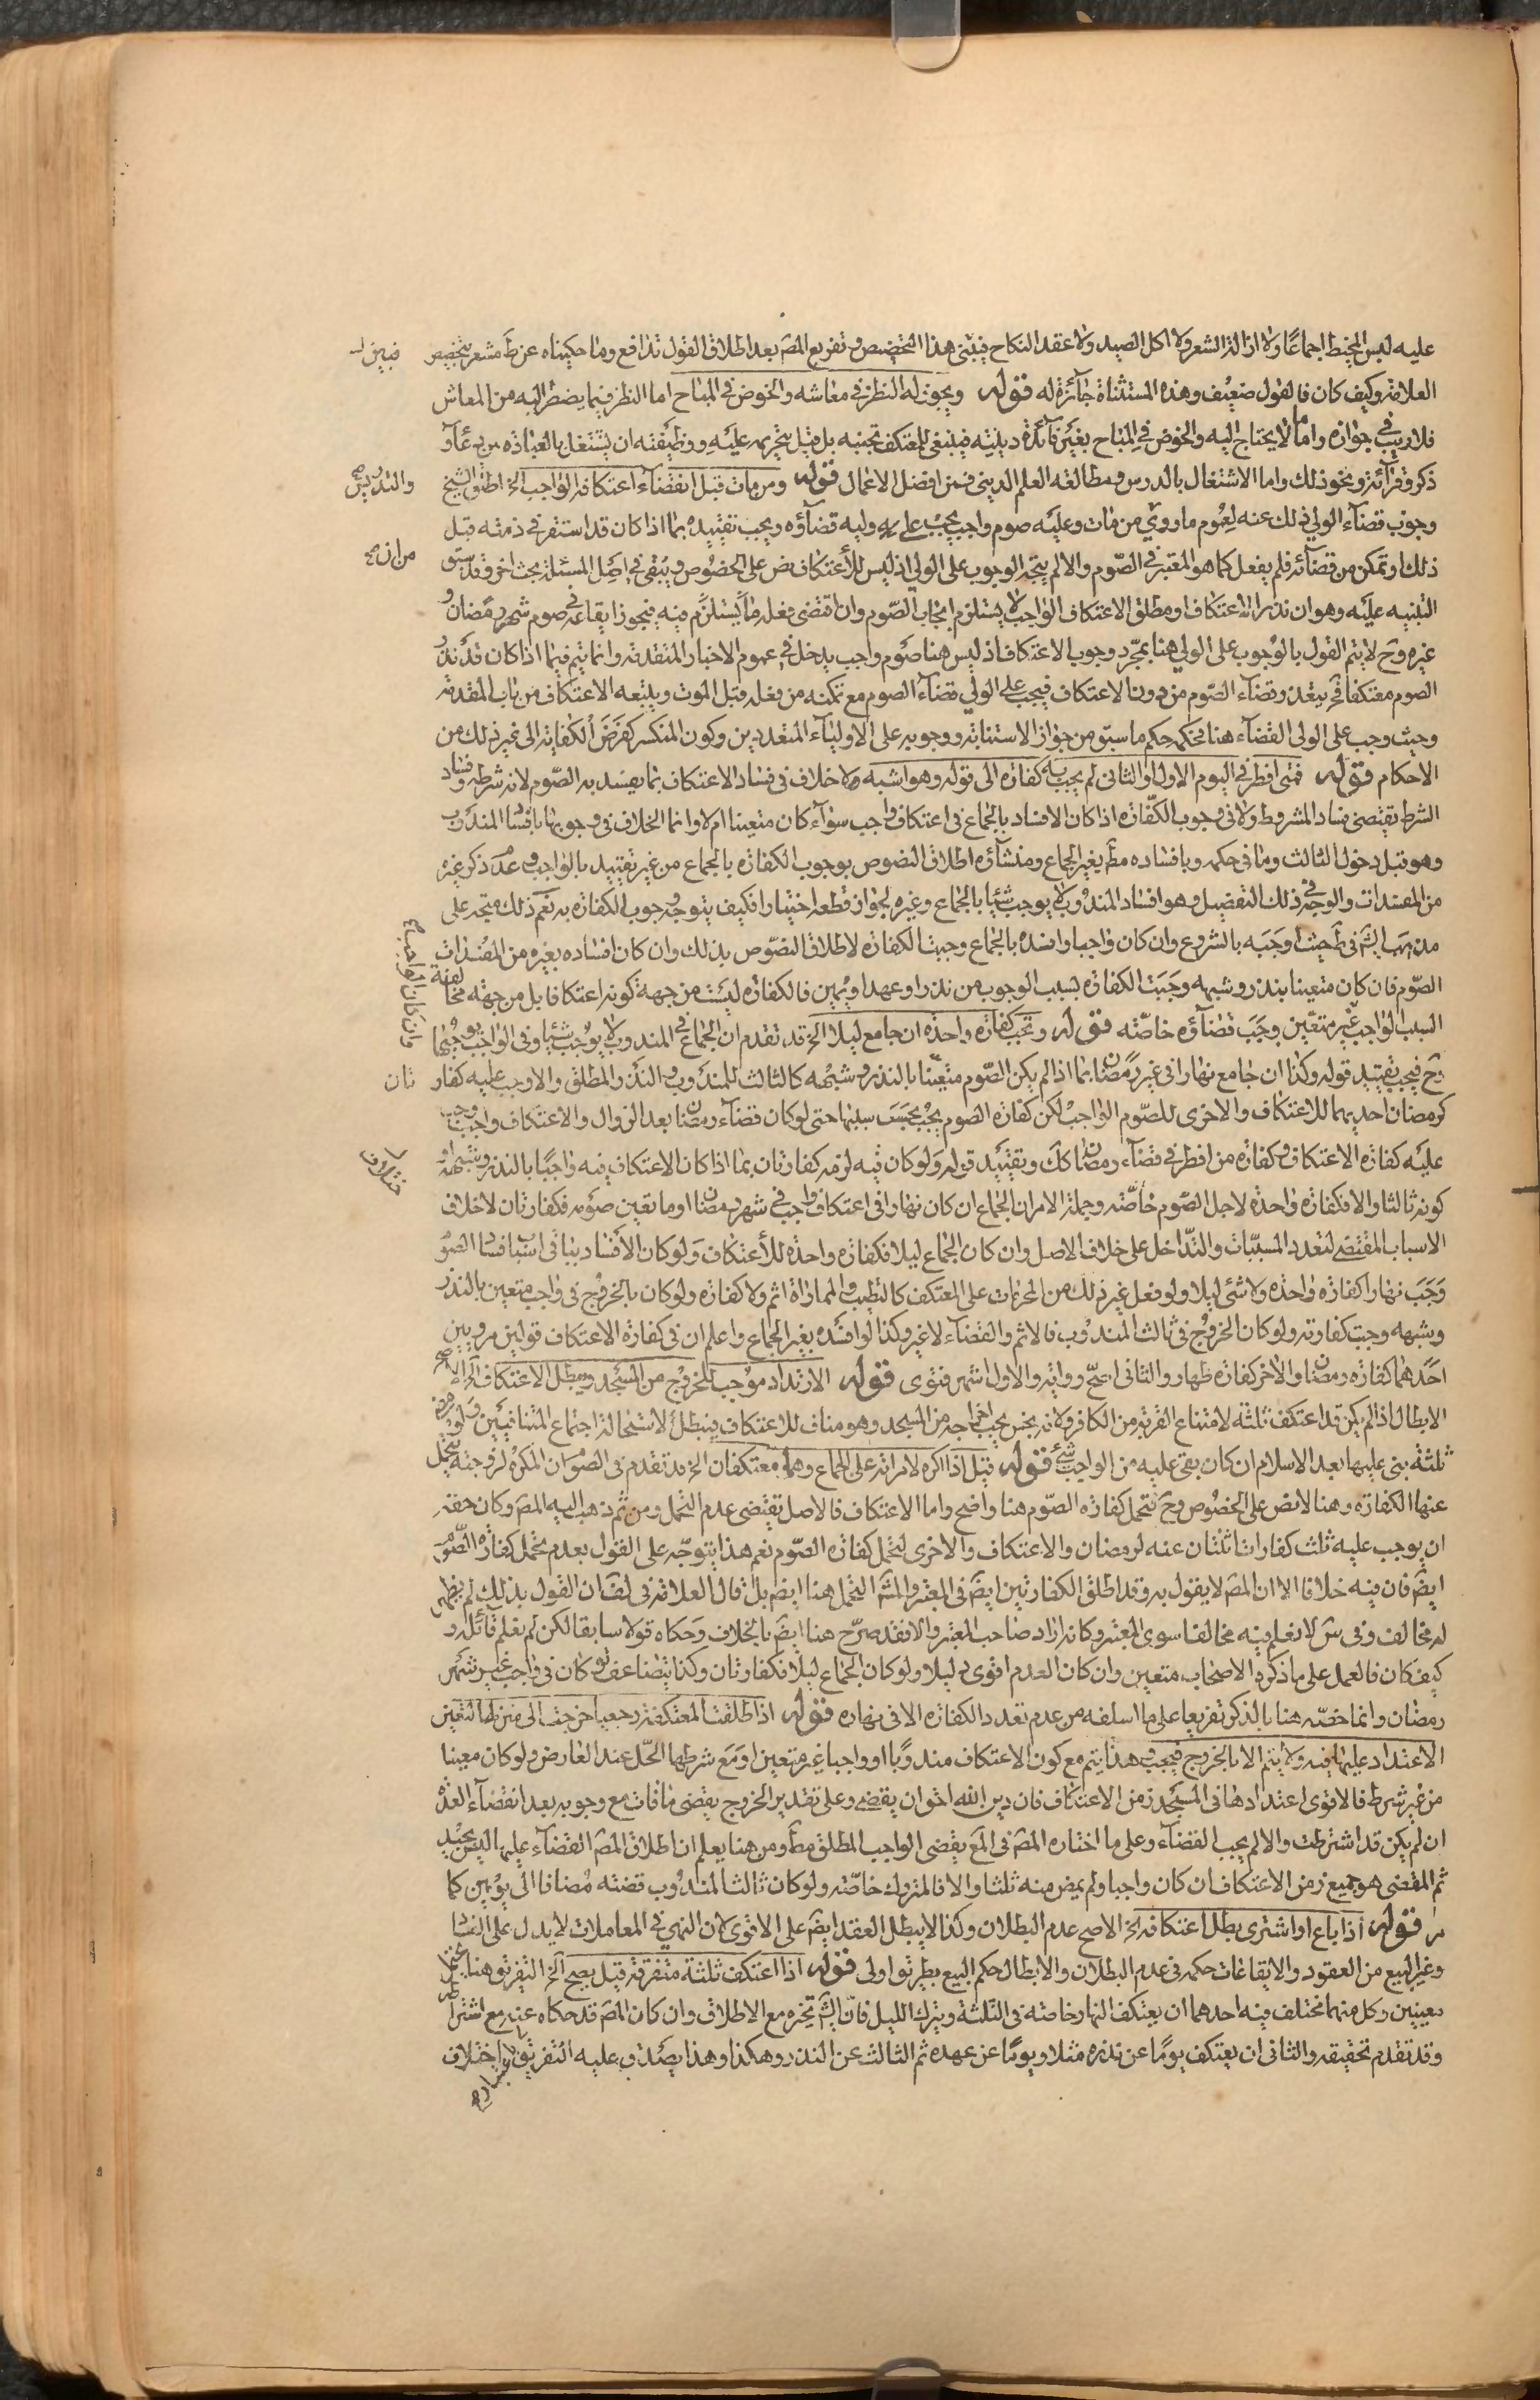 عليه لبس المخيط اجماعًا ولا ازالة الشعر ولا اكل الصيد ولا عقد النكاح فينبغي هذا التخصيص وتفريع المصَ بعد اطلاق القول تدافع وما حكيناه عن ط مشعر بتخصيص
العلامة وكيف كان فالقول ضعيف وهذه المستثناة جائزة له قوله ويجوز له النظر في معاشه والخوض في المباح اما النظر فيما يضطر اليه من المعاش
فلا ريب في جوازه واما ما لا يحتاج اليه والخوض في المباح بغير فائدة دينية فينبغي للمعتكف تجنبه بل قيل بتحريمه عليه ووظيفته ان يشتغل بالعبادة من دعاء و
ذكر وقرائة ونحو ذلك واما الاشتغال بالدرس ومطالعة العلم الديني فمن افضل الاعمال قوله ومن مات قبل انقضاء اعتكافه الواجب الخ اطلق الشيخ
والتدريس صح
وجوب قضاء الولي ذلك عنه لعموم ما روي من مات وعليه صوم واجب يجب على وليه قضاؤه ويجب تقييده بما اذا كان قد استقر في ذمته قبل
ذلك او تمكن من قضائه فلم يفعل كما هو المعتبر في الصوم والا لم يتجه الوجوب على الولي اذ ليس للاعتكاف نص على الخصوص ويبقى في اصل المسئلة بحث اخر وقد سبق
من ان صح
التنبيه عليه وهو ان نذر الاعتكاف او مطلق الاعتكاف الواجب لا يستلزم ايجاب الصوم وان اقتضى فعله ما يستلزم فيه فيجوز ايقاعه في صوم شهر رمضان و
غيره وح لا يتم القول بالوجوب على الولي هنا بمجرد وجوب الاعتكاف اذ ليس هنا صوم واجب يدخل في عموم الاخبار المتقدمة وانما يتم فيما اذا كان قد نذر
الصوم معتكفا فح يتعذر قضاء الصوم من دون الاعتكاف فيجب على الولي قضاء الصوم مع تمكنه من فعله قبل الموت ويتبعه الاعتكاف من باب المقدمة
وحيث وجب على الولي القضاء هنا فحكمه حكم ما سبق من جواز الاستنابة ووجوبه على الاولياء المتعددين وكون المنكسر كفرض الكفاية الى غير ذلك من
الاحكام قوله فمتى افطر في اليوم الاول او الثاني لم يجب به كفارة الى قوله وهو اشبه لا خلاف في فساد الاعتكاف بما يفسد به الصوم لانه شرطه وفساد
الشرط يقتضي فساد المشروط ولا في وجوب الكفارة اذا كان الافساد بالجماع في اعتكاف واجب سواء كان متعينا ام لا وانما الخلاف في وجوبها بافساد المندوب
وهو قبل دخول الثالث وما في حكمه وبافساده مط بغير الجماع ومنشاؤه اطلاق النصوص بوجوب الكفارة بالجماع من غير تقييد بالواجب وعدم ذكر غيره
من المفسدات والوجه في ذلك التفصيل وهو افساد المندوب لا يوجب شيئا بالجماع وغيره لجوازه قطعا اختيارا فكيف يتوجه وجوب الكفارة به نعم ذلك متجه على
مذهب الش في ط حيث اوجبه بالشروع وان كان واجبا وافسده بالجماع وجبت الكفارة لاطلاق النصوص بذلك وان كان افساده بغيره من المفسدات
الصوم فان كان متعينا بنذر وشبهه وجبت الكفارة بسبب الوجوب من نذر او عهد او يمين فالكفارة ليست من جهة كونه اعتكافا بل من جهة مخالفة
السبب الواجب غير متعين وجب قضاؤه خاصة قوله وتجب كفارة واحدة ان جامع ليلا الخ قد تقدم ان الجماع في المندوب لا يوجب شيئا وفي الواجب يوجبها
وان كان الواجب صح
وح فيجب تقييد قوله وكذا ان جامع نهارا في غير رمضان بما اذا لم يكن الصوم متعينا بالنذر وشبهه كالثالث للمندوب والنذر المطلق والا وجب عليه كفار
تان
كرمضان احديهما للاعتكاف والاخرى للصوم الواجب لكن كفارة الصوم يجب بحسب سببها حتى لو كان قضاء رمضان بعد الزوال والاعتكاف واجب وجب
عليه كفارة الاعتكاف وكفارة من افطر في قضاء رمضان كك وتقييد قوله ولو كان فيه لزمه كفارتان بما اذا كان الاعتكاف فيه واجبًا بالنذر وشبهه او
كونه ثالثا والا فكفارة واحدة لاجل الصوم خاصة وجملة الامر ان الجماع ان كان نهارا في اعتكاف واجب في شهر رمضان او ما تعين صومه فكفارتان لاختلاف
الاسباب المقتضي لتعدد المسببات والتداخل على خلاف الاصل وان كان الجماع ليلا فكفارة واحدة للاعتكاف ولو كان الافساد بباقي اسباب افساد الصوم
وجب نهارا كفارة واحدة ولا شئ ليلا ولو فعل غير ذلك من المحرمات على المعتكف كالتطيب والمماراة اثم ولا كفارة ولو كان بالخروج في واجب متعين بالنذر
وشبهه وجبت كفارته ولو كان الخروج في ثالث المندوب فالاثم والقضاء لا غير وكذا لو افسده بغير الجماع واعلم ان في كفارة الاعتكاف قولين مرويين
احدهما كفارة رمضان والاخر كفارة ظهار والثاني اصح رواية والاول اشهر فتوى قوله الارتداد موجب للخروج من المسجد ويبطل الاعتكاف الخ الاصح
الابطال اذا لم يكن قد اعتكف ثلثة لامتناع القربة من الكافر ولانه نجس يجب اخراجه من المسجد وهو مناف للاعتكاف فيبطل لاستحالة اجتماع المتنافيين ولو مضى
ثلثة بنى عليها بعد الاسلام ان كان بقي عليه من الواجب شئ قوله قيل اذا اكره لامراته على الجماع وهما معتكفان الخ قد تقدم في الصوم ان المكره لزوجته يتحمل
عنها الكفارة وهنا لا نص على الخصوص وح فتحمل كفارة الصوم هنا واضح واما الاعتكاف فالاصل يقتضي عدم التحمل ومن ثم ذهب اليه المصَ وكان حقه
ان يوجب عليه ثلث كفارات اثنتان عنه لرمضان والاعتكاف والاخرى لتحمل كفارة الصوم نعم هذا يتوجه على القول بعدم تحمل كفارة الصوم
ايضَ فان فيه خلافا الا ان المصَ لا يقول به وقد اطلق الكفارتين ايضَ في المعتبر والشَ التحمل هنا ايضَ بل قال العلامة في لف ان القول بذلك لم يظهر
له مخالف وفي س لا نعلم فيه مخالفا سوى المعتبر وكانه اراد صاحب المعتبر والا فقد صرح هنا ايضَ بالخلاف وحكاه قولا سابقا لكن لم نعلم قائله و
كيف كان فالعمل على ما ذكره الاصحاب متعين وان كان العدم اقوى ليلا ولو كان الجماع ليلا فكفارتان وكذا يتضاعف لو كان في واجب غير شهر
رمضان وانما خصه هنا بالذكر تفريعا على ما اسلفه من عدم تعدد الكفارة الا في نهاره قوله اذا طلقت المعتكفة رجعيا خرجت الى منزلها لتعين
الاعتداد عليها فيه ولا يتم الا بالخروج فيجب هذا يتم مع كون الاعتكاف مندوبًا او واجبا غير متعين او مع شرطها الحل عند العارض ولو كان معينا
من غير شرط فالاقوى اعتدادها في المسجد زمن الاعتكاف فان دين الله احق ان يقضى وعلى تقدير الخروج يقضى ما فات مع وجوبه بعد انقضاء العدة
ان لم يكن قد اشترطت والا لم يجب القضاء وعلى ما اختاره المصَ في المع يقضى الواجب المطلق مط ومن هنا يعلم ان اطلاق المصَ القضاء عليها ليس بجيد
ثم المقضي هو جميع زمن الاعتكاف ان كان واجبا ولم يمض منه ثلثا والا فالمتروك خاصة ولو كان ثالثا لمندوب قضته مضافا الى يومين كما
مر قوله اذا باع او اشترى بطل اعتكافه الخ الاصح عدم البطلان وكذا لا يبطل العقد ايضَ على الاقوى لان النهي في المعاملات لا يدل على الفسا
وغير البيع من العقود والايقاعات حكمه في عدم البطلان والابطال حكم البيع بطريق اولى قوله اذا اعتكف ثلثة متفرقة قيل يصح الخ التفريق هنا يحتمل
معنيين وكل منهما مختلف فيه احدهما ان يعتكف النهار خاصة في الثلثة ويترك الليل فان الش تجزه مع الاطلاق وان كان المصَ قد حكاه عنه مع اشتراطه
وقد تقدم تحقيقه والثاني ان يعتكف يومًا عن نذره مثلا ويومًا عن عهده ثم الثالث عن النذر وهكذا وهذا يصدق عليه التفريق لاختلاف